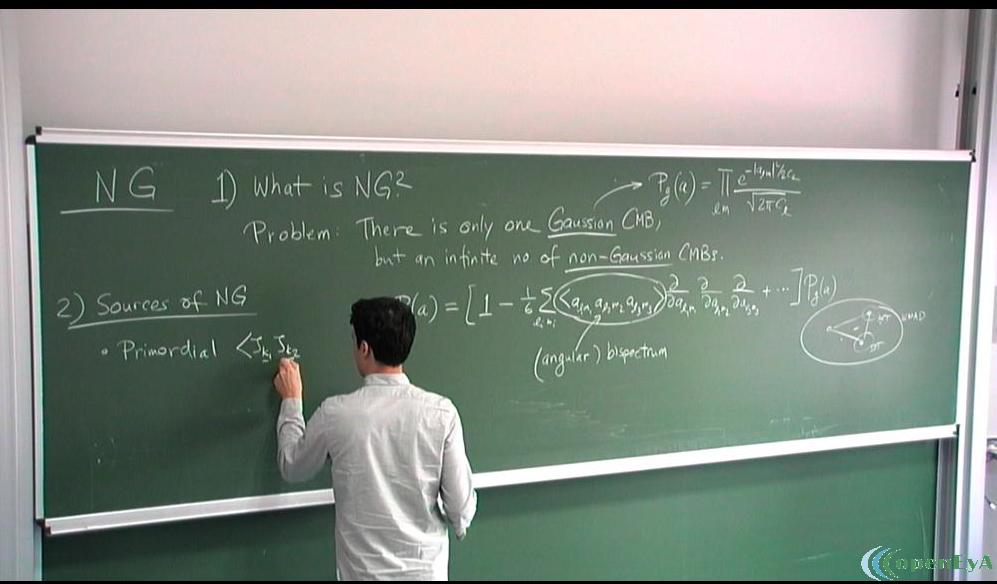 NG 1) What is NG? P_g(a) = ∏_{lm} e^{-|a_{lm}|²/2C_l} / √(2πC_l)
Problem: There is only one Gaussian CMB,
but an infinite no of non-Gaussian CMBs.
2) Sources of NG
P(a) = [1 - 1/6 Σ_{l_i m_i} <a_{l_1m_1} a_{l_2m_2} a_{l_3m_3}> ∂/∂a_{l_1m_1} ∂/∂a_{l_2m_2} ∂/∂a_{l_3m_3} + ...] P_g(a)
• Primordial <ζ_{k_1} ζ_{k_2}
(angular) bispectrum
openEyA